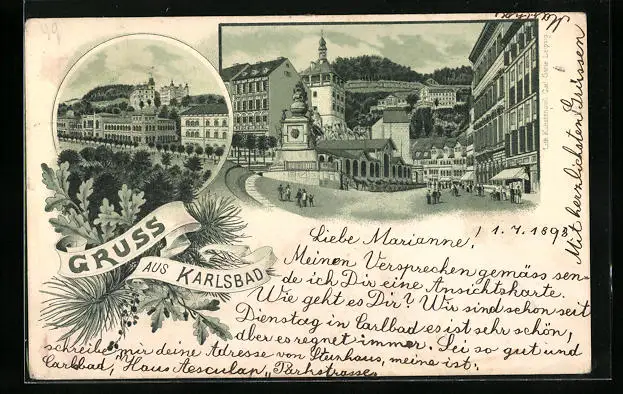 GRUSS
AUS KARLSBAD
Liebe Marianne! 1.7.1898
Meinen Versprechen gemäss sen-
de ich Dir eine Ansichtskarte.
Wie geht es Dir? Wir sind schon seit
Dienstag in Carlbad es ist sehr schön,
aber es regnet immer. Sei so gut und
schreibe mir deine Adresse von Steinhaus, meine ist:
Carlbad, Haus Aesculap „Parkstrasse"
Mit herzlichsten Grüssen